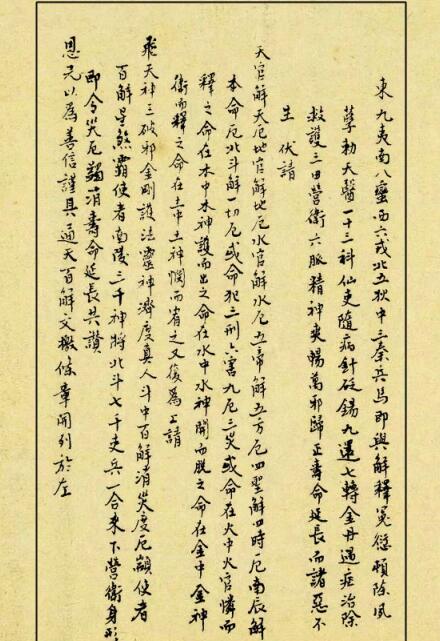 東九夷南八蠻西六戎北五狄中三秦兵馬即與解釋冤愆頓除夙
孽勅天醫一十三科仙吏隨病針砭錫九還七轉金丹遇症治除
救護三田營衛六脈精神爽暢萬邪歸正壽命延長而諸惡不
生 伏請
天官解天厄地官解地厄水官解水厄五帝解五方厄四聖解四時厄南辰解
本命厄北斗解一切厄或命犯三刑六害九厄三災或命在火中火官憐而
釋之命在木中木神護而出之命在水中水神開而脫之命在金中金神
衛而釋之命在土中土神憫而宥之又復為上請
飛天神王破邪金剛護法靈神濟度真人斗中百解消災度厄顓使者
百解星煞霸使者南陵三千神將北斗七千吏兵一合來下營衛身形
即令災厄蠲消壽命延長共讚
恩光以為善信謹具通天百解文檄條章開列於左